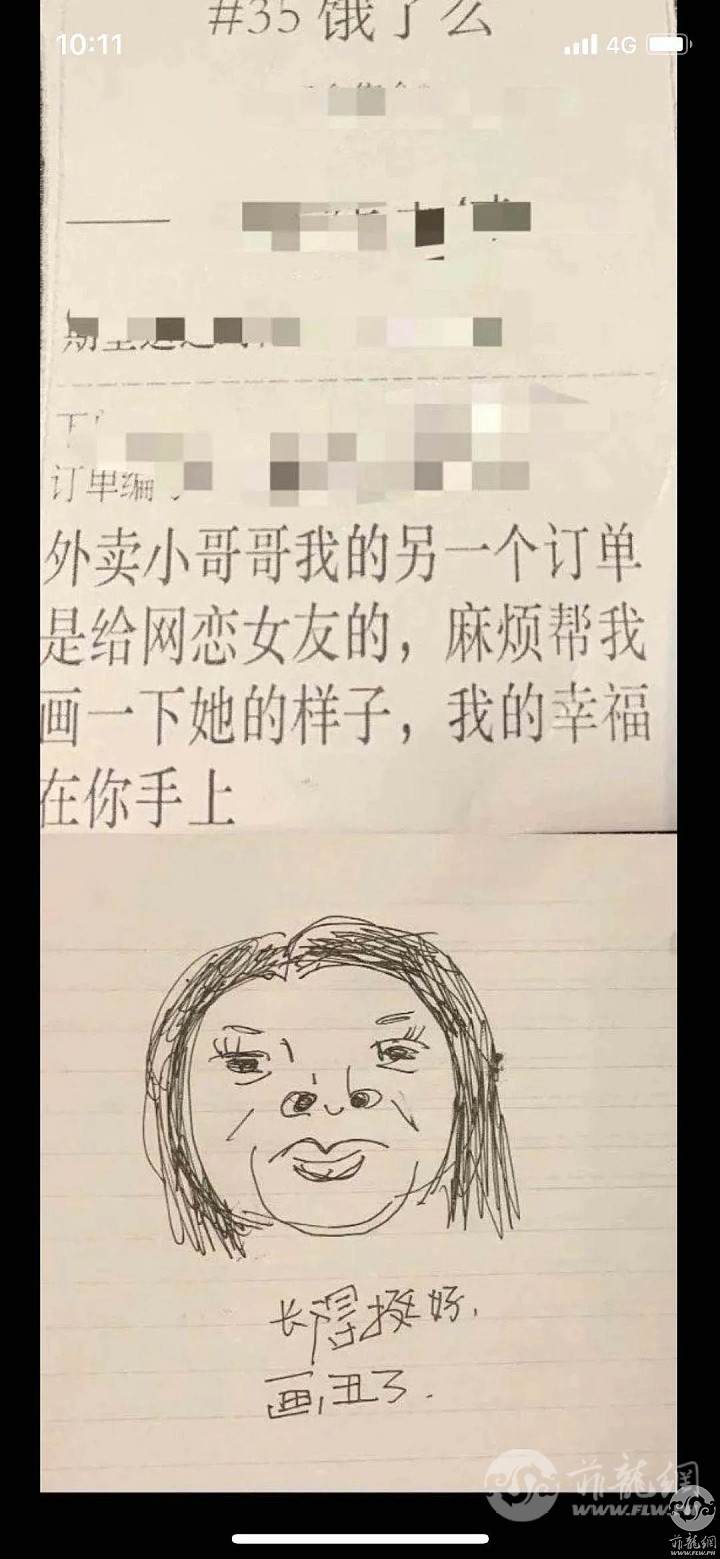 10:11
4G
#35 饿了么
订单编
外卖小哥哥我的另一个订单
是给网恋女友的，麻烦帮我
画一下她的样子，我的幸福
在你手上
长得挺好，
画丑了．
菲龍網
WWW.FLW.PH
菲龍網
WWW.FLW.PH